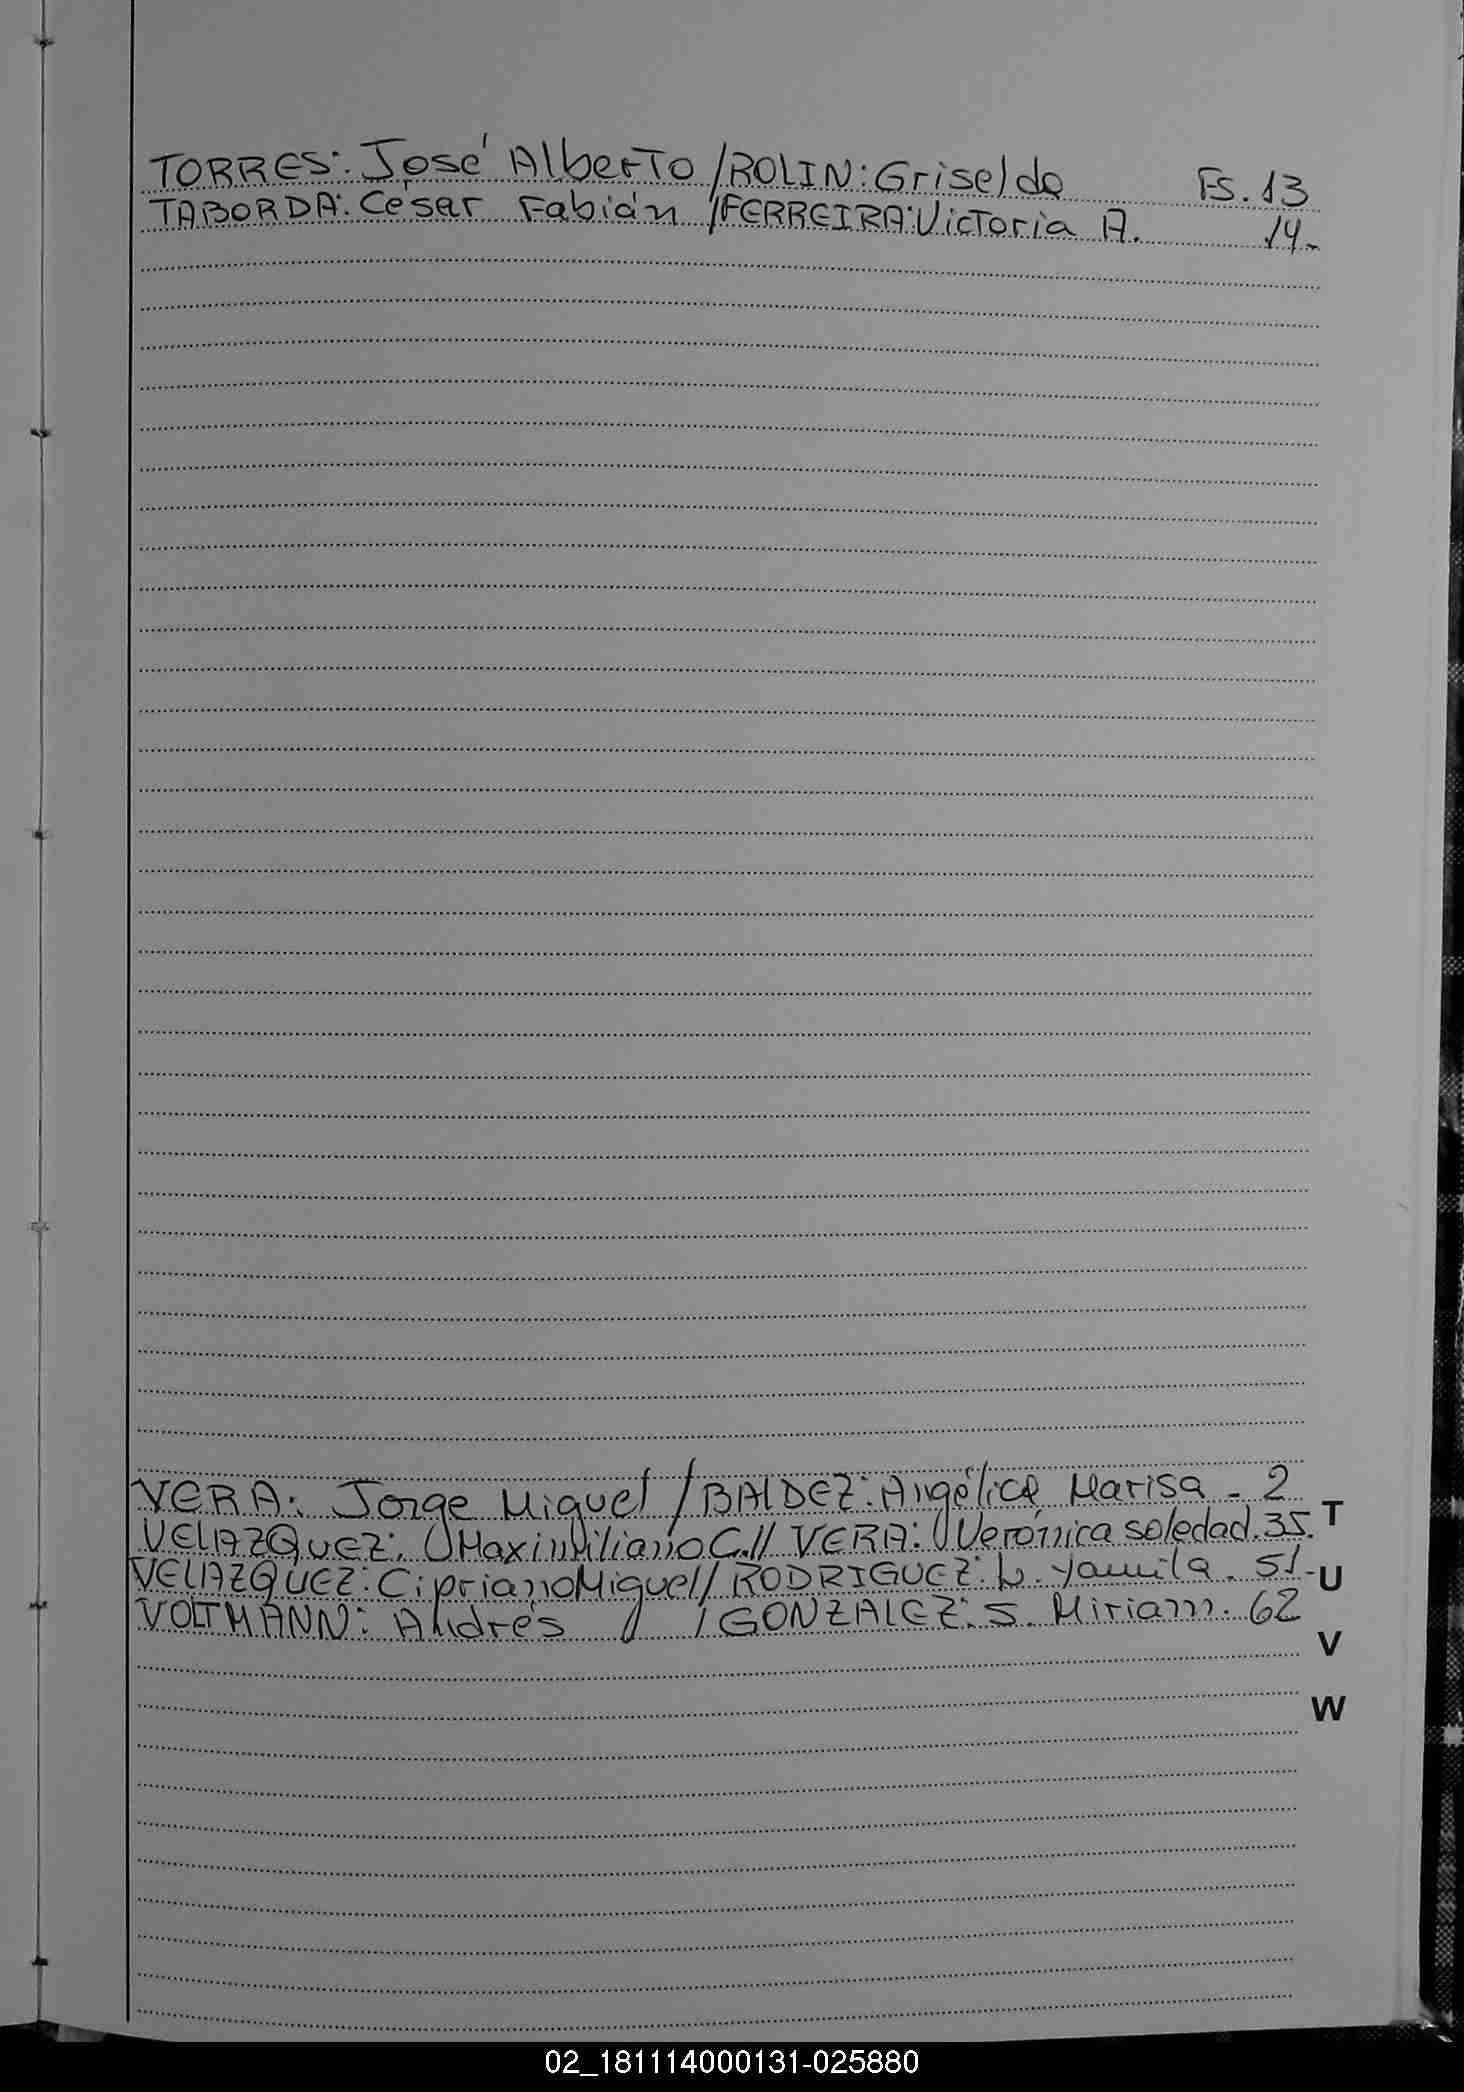 TORRES: José Alberto / ROLIN: Griselda Fs. 13
TABORDA: César Fabián / FERREIRA: Victoria A. 14-
VERA: Jorge Miguel / BALDEZ: Angélica Marisa - 2
VELAZQUEZ: Maximiliano C. // VERA: Verónica Soledad. 35.
VELAZQUEZ: Cipriano Miguel // RODRIGUEZ: L. Yamila. 51-
VOLTMANN: Andrés / GONZALEZ: S. Miriam. 62
T
U
V
W
02_181114000131-025880